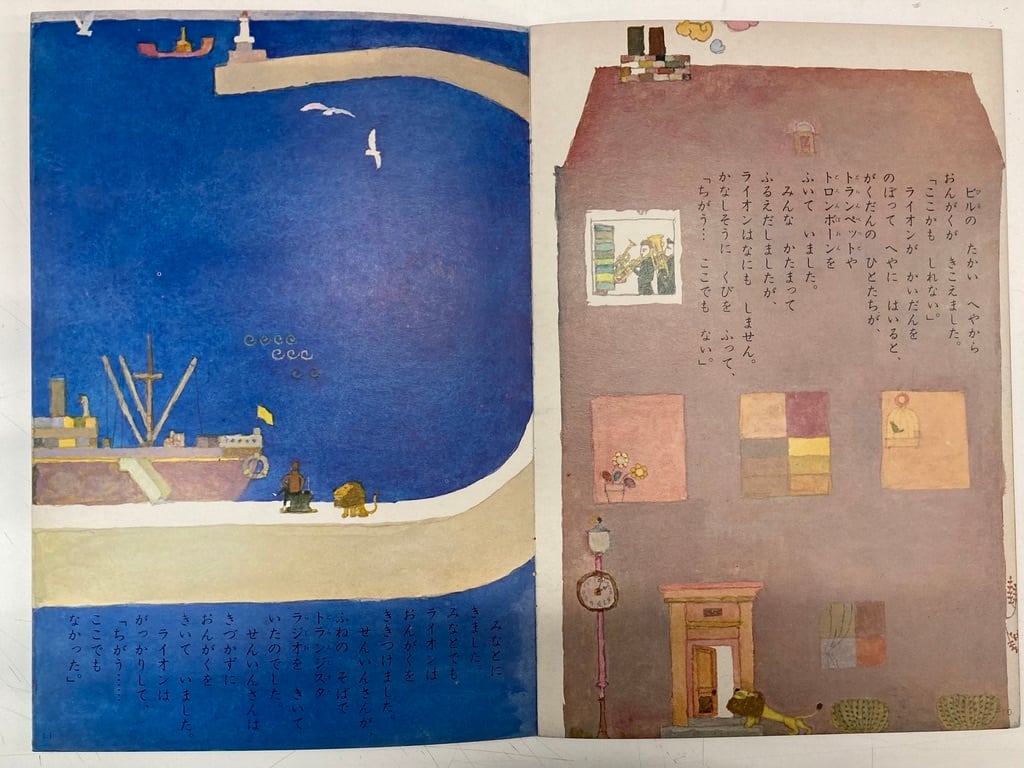 ビルの たかい へやから
おんがくが きこえました。
「ここかも しれない。」
ライオンが かいだんを
のぼって へやに はいると、
がくだんの ひとたちが、
トランペットや
トロンボーンを
ふいて いました。
みんな かたまって
ふるえだしましたが、
ライオンはなにも しません。
かなしそうに くびを ふって、
「ちがう… ここでも ない」。
みなとに
きました。
みなとでも
ライオンは
おんがくを
ききつけました。
せんいんさんが、
ふねの そばで
トランジスタ
ラジオを きいて
いたのでした。
せんいんさんは
きづかずに
おんがくを
きいて いました。
ライオンは
がっかりして、
「ちがう……
ここでも
なかった」。
11